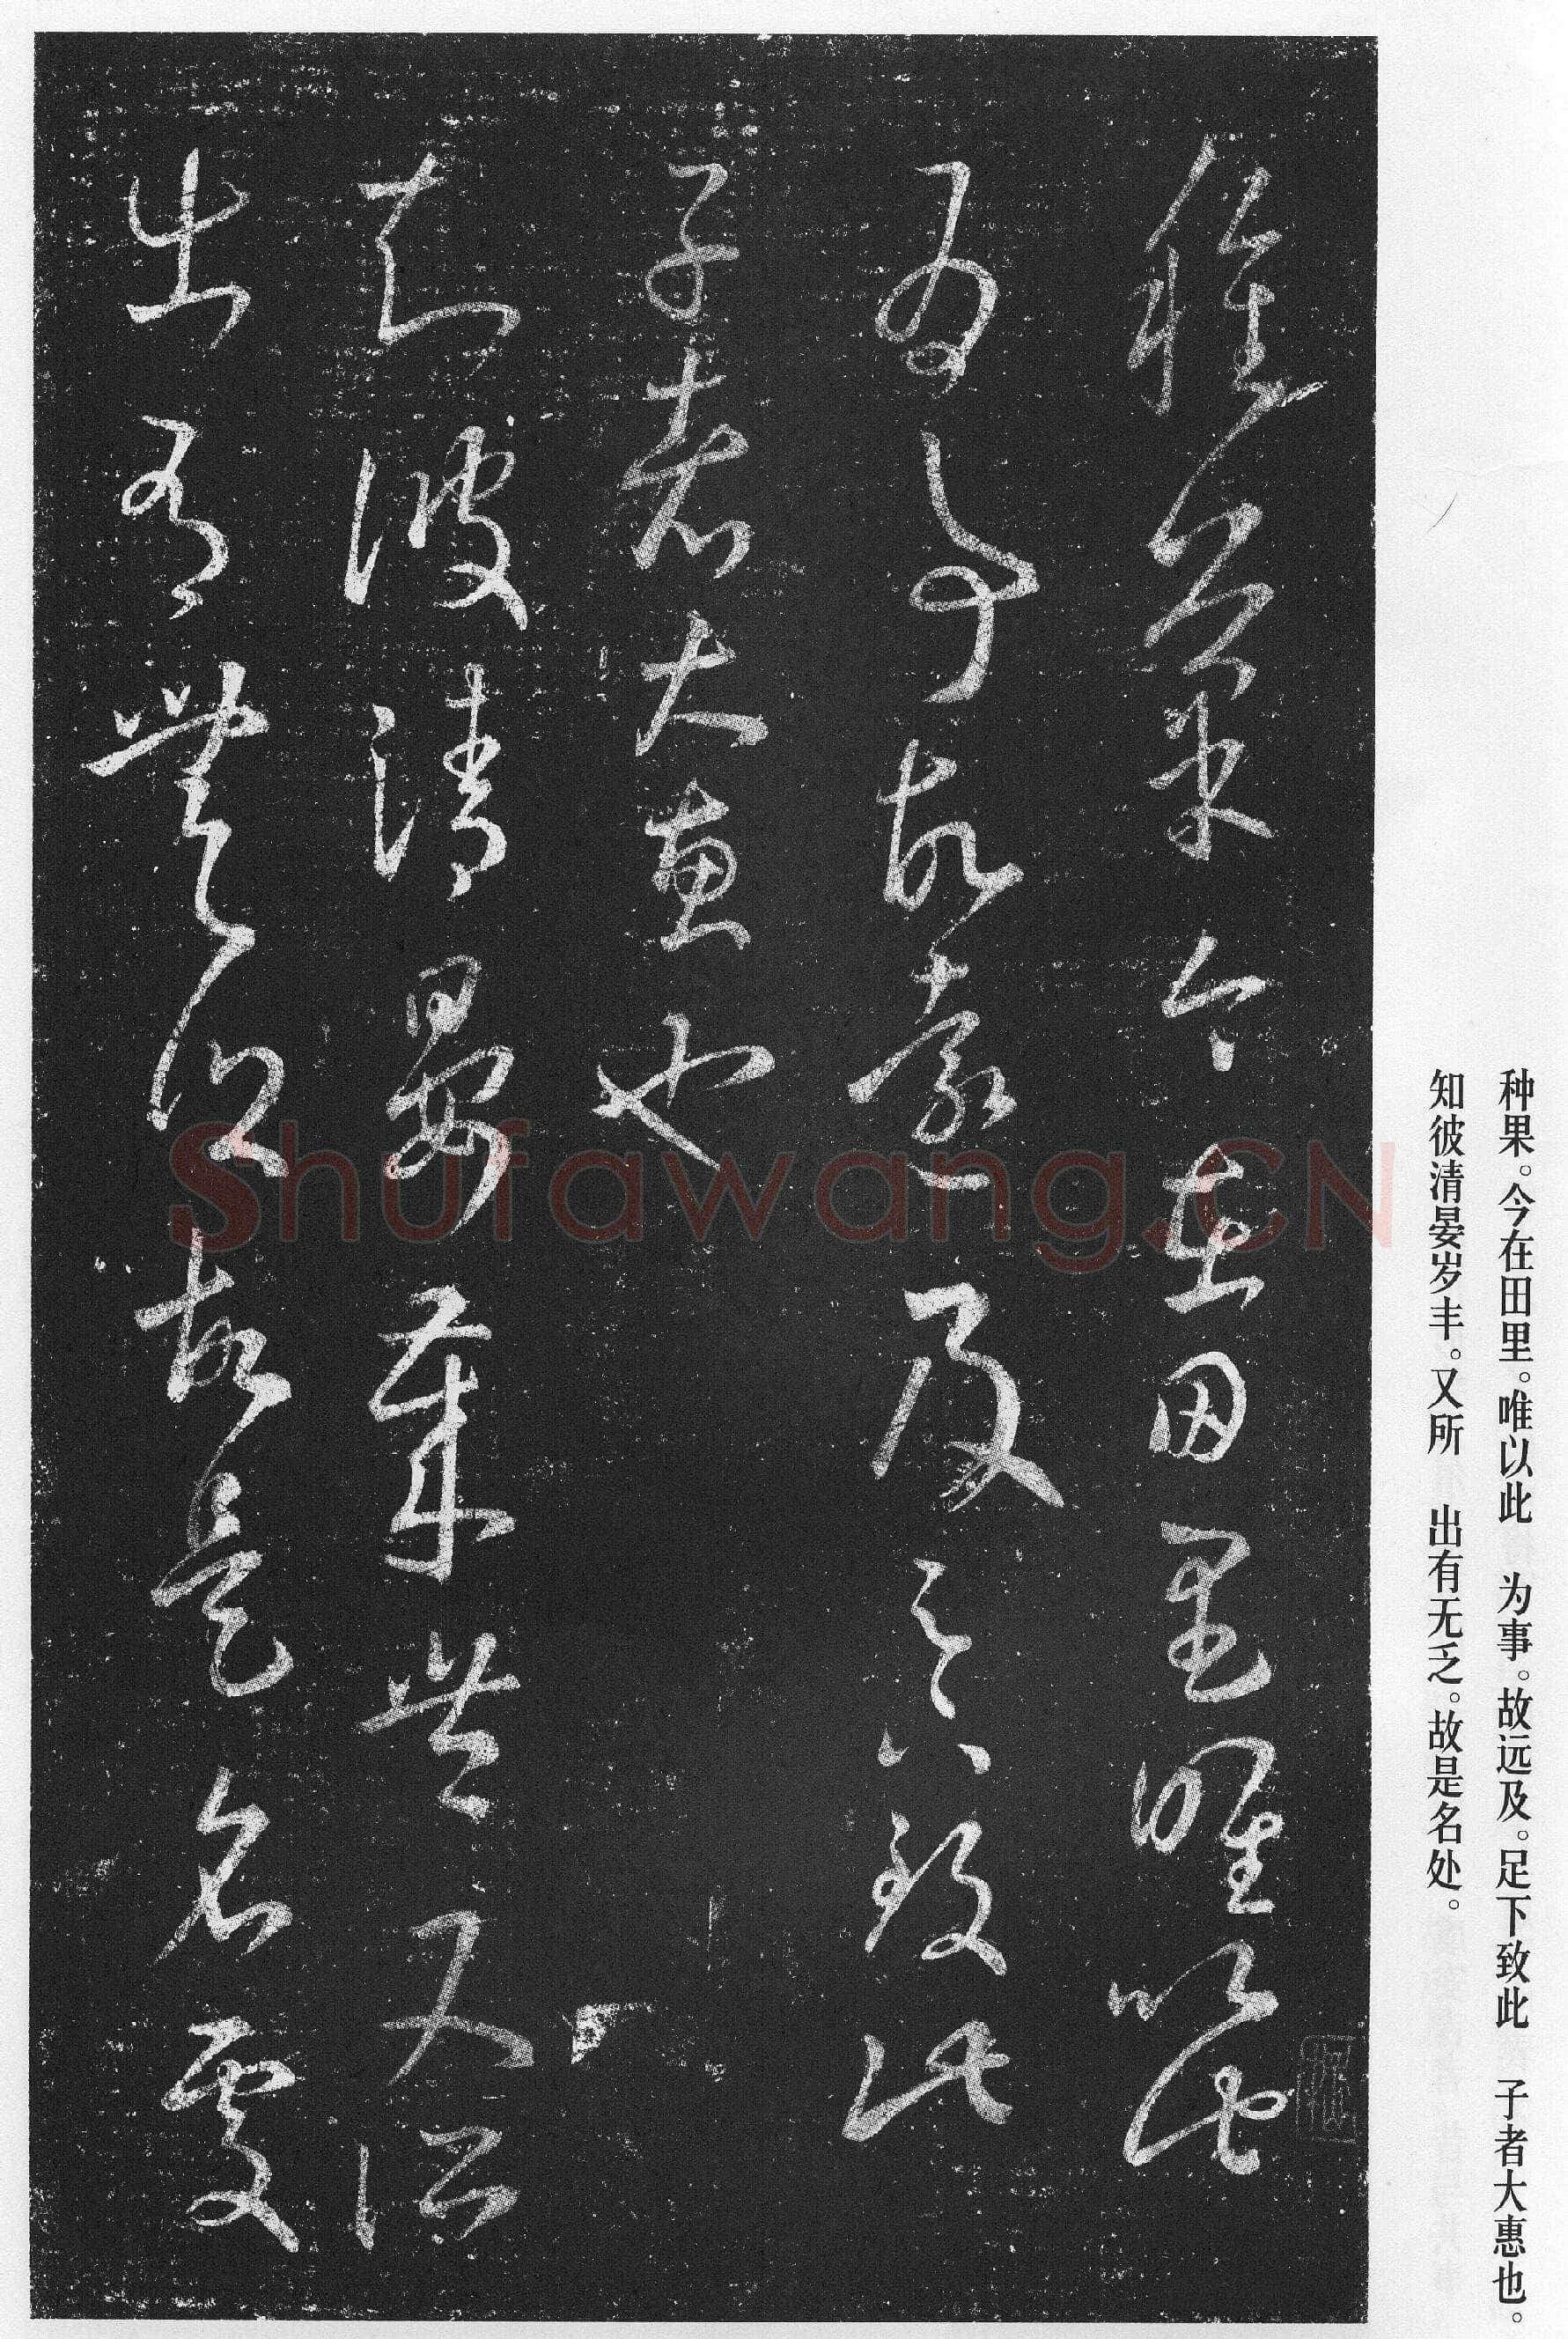 种果。今在田里。唯以此　为事。故远及。足下致此　子者大惠也。
知彼清晏岁丰。又所　出有无乏。故是名处。
種菓今在田里唯以此
為事故遠及足下致此
子者大惠也
知彼清晏歲豐又所
出有無乏故是名處
Shufawang.CN